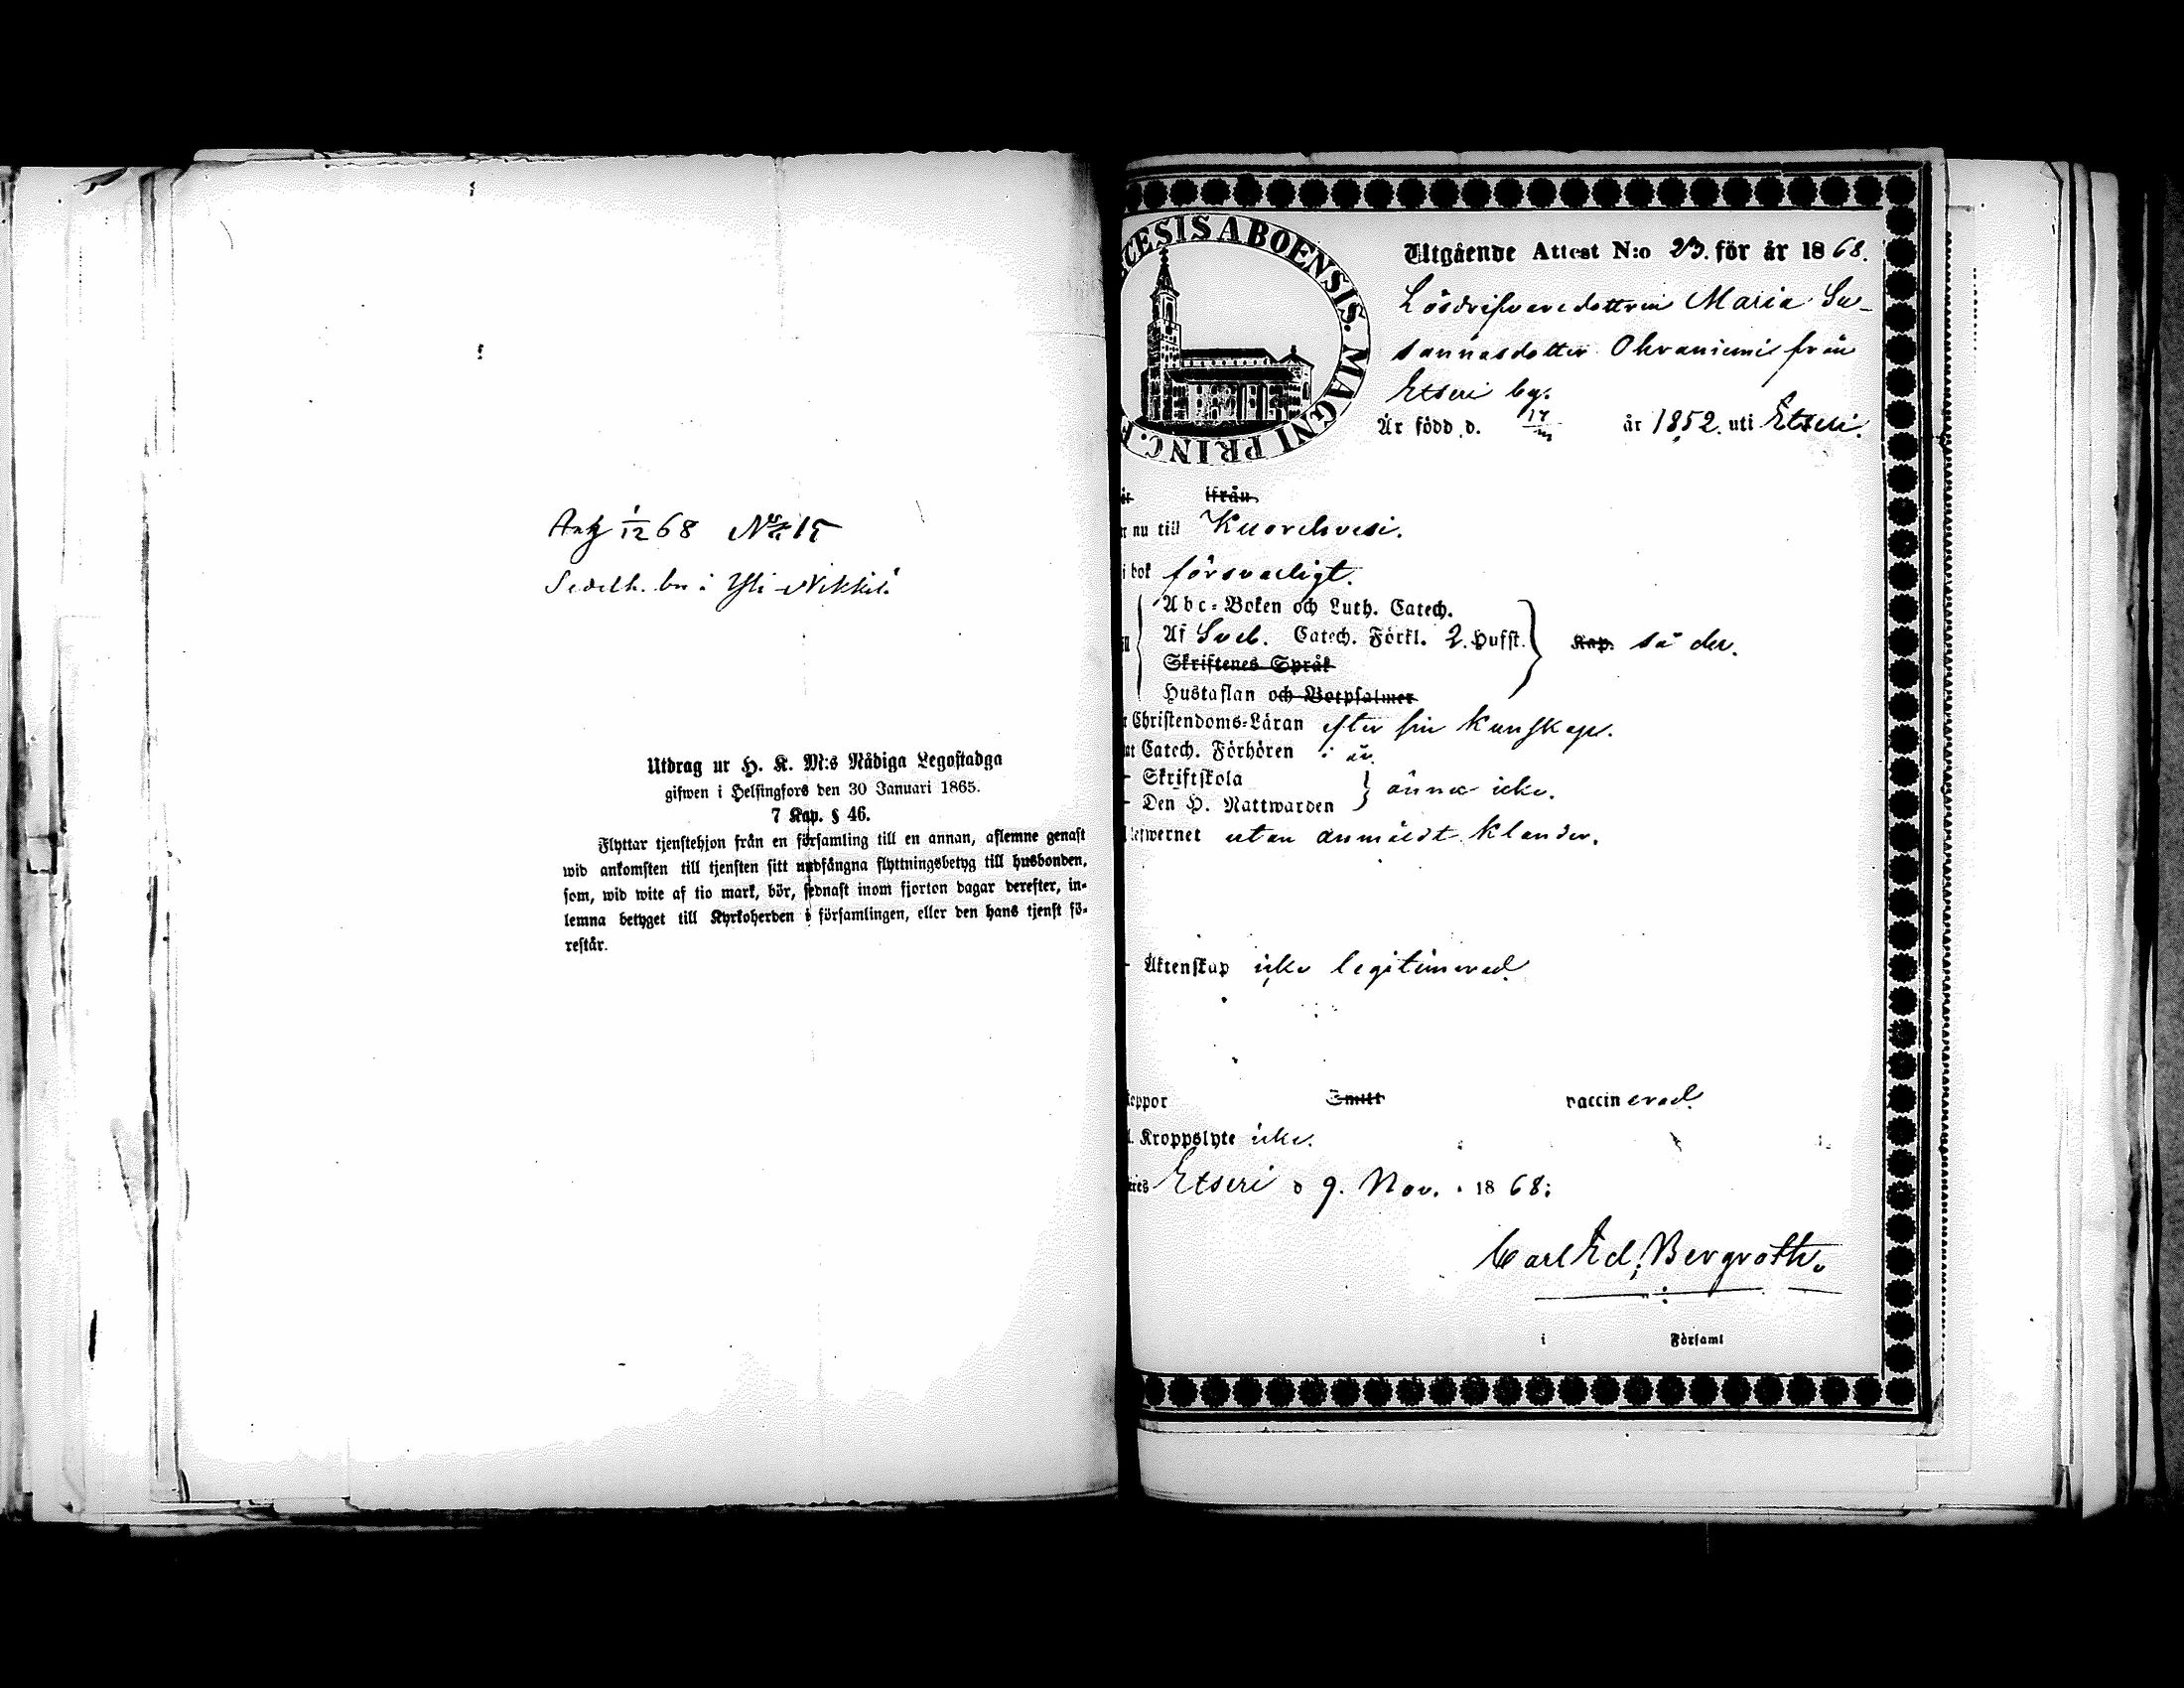 Antg 1/12 68 No 15
Sedelh. bu: Yli-Nikkilä
Utdrag ur H. K. M:s Nådiga Legostadga
gifwen i Helsingfors den 30 Januari 1865.
7 Kap. § 46.
Flyttar tjenstehjon från en församling till en annan, aflemne genast
wid ankomsten till tjensten sitt undfångna flyttningsbetyg till husbonden,
som, wid wite af tio mark, bör, sednast inom fjorton dagar derefter, in-
lemna betyget till Kyrkoherden i församlingen, eller den hans tjenst fö-
restår.
CESIS ABOENSIS. MAGNI PRINC. F
Utgående Attest N:o 23. för år 1868.
Lösdrifvaredottren Maria Su-
sannasdotter Ohraniemi från
Etseri by.
Är född d. 17 år 1852. uti Etseri.
ifrån
nu till Kuorehvesi.
i bok försvarligt.
Abc-Boken och Luth. Catech.
Af Sveb. Catech. Förkl. 2. Hufst. Kap. så der.
Skriftenes Språk
Hustaflan och Botpsalmer
Christendoms-Läran efter sin kunskap.
Catech. Förhören är.
Skriftskola
Den H. Nattwarden ännu icke.
lefwernet utan anmäldt klander.
Äktenskap icke legitimerad.
koppor Smitt vaccinerad.
Kroppslyte icke.
Etseri d 9. Nov. 1868:
Carl Ed. Bergroth.
i Församl